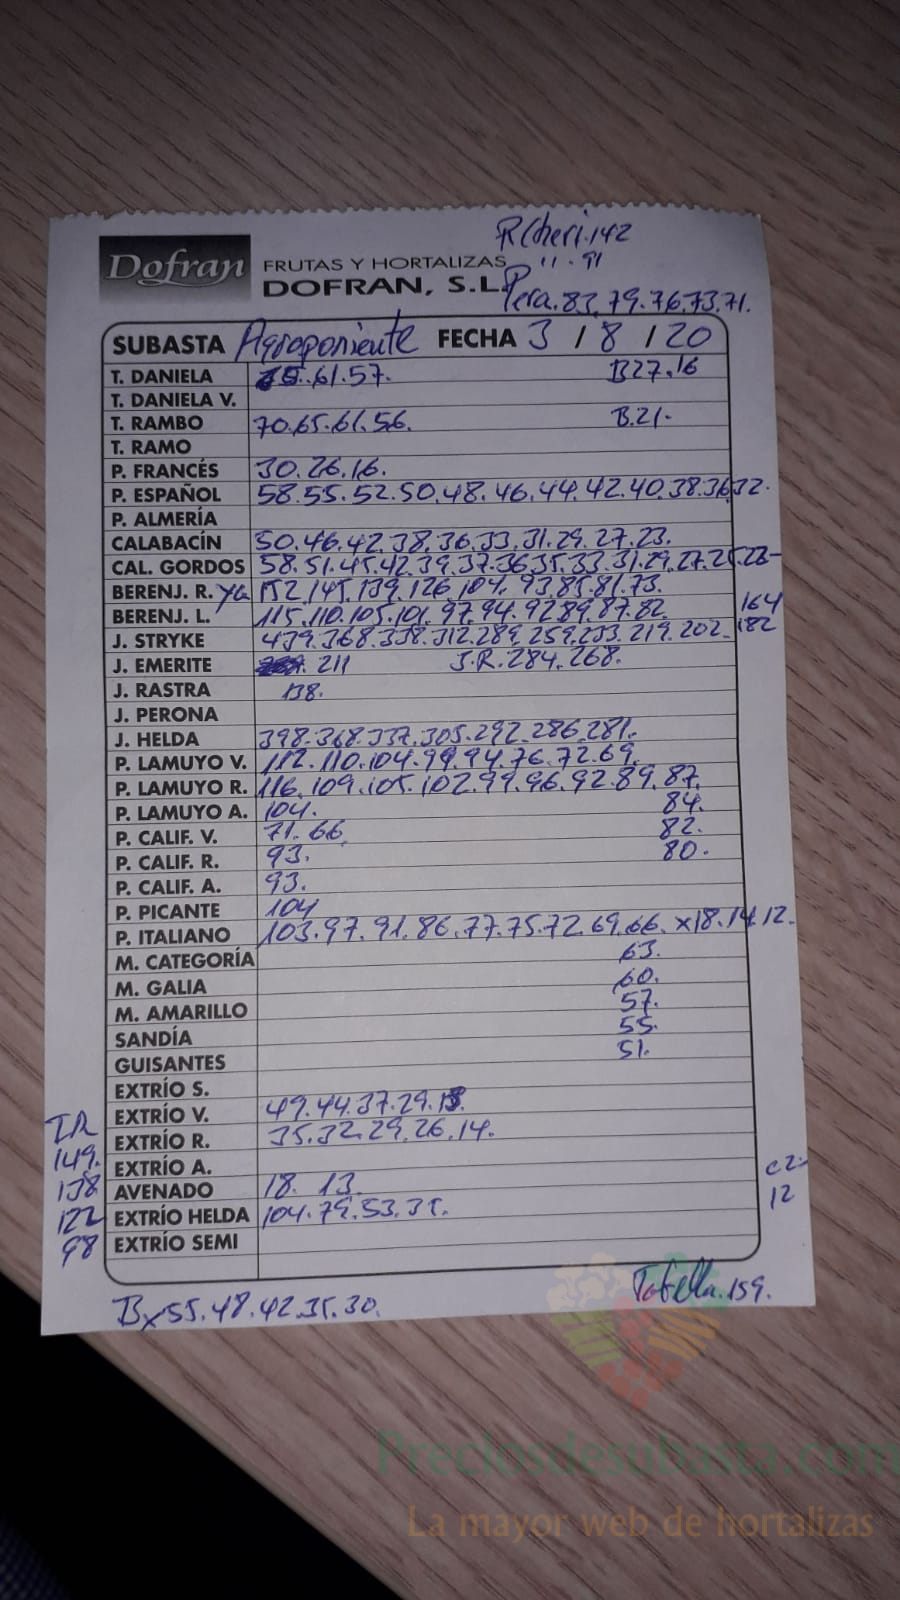 R Cheri.142
Dofran FRUTAS Y HORTALIZAS 11.91
DOFRAN, S.L. Pera.83.79.76.73.71.
SUBASTA Agroponiente FECHA 3 / 8 / 20
T. DANIELA .61.57. B27.16
T. DANIELA V.
T. RAMBO 70.65.61.56. B.21.
T. RAMO
P. FRANCÉS 30.26.16.
P. ESPAÑOL 58.55.52.50.48.46.44.42.40.38.36.32.
P. ALMERÍA
CALABACÍN 50.46.42.38.36.33.31.29.27.23.
CAL. GORDOS 58.51.45.42.39.37.36.35.33.31.29.27.25.23-
BERENJ. R. 152.145.139.126.104.93.85.81.73.
BERENJ. L. 115.110.105.101.97.94.92.89.87.82. 164
J. STRYKE 439.368.338.312.289.259.233.219.202. 182
J. EMERITE 211 J.R.284.268.
J. RASTRA 138.
J. PERONA
J. HELDA 398.368.337.305.292.286.281.
P. LAMUYO V. 112.110.104.99.94.76.72.69.
P. LAMUYO R. 116.109.105.102.99.96.92.89.87.
P. LAMUYO A. 104. 84.
P. CALIF. V. 71.66 82.
P. CALIF. R. 93. 80.
P. CALIF. A. 93.
P. PICANTE 104
P. ITALIANO 103.97.91.86.77.75.72.69.66. x18.14.12.
M. CATEGORÍA 63.
M. GALIA 60.
M. AMARILLO 57.
SANDÍA 55.
GUISANTES 51.
EXTRÍO S.
EXTRÍO V. 49.44.37.29.
EXTRÍO R. 35.32.29.26.14.
149. EXTRÍO A.
138 AVENADO 18. 13. c2-
122 EXTRÍO HELDA 104.79.53.35. 12
98 EXTRÍO SEMI
Bx55.48.42.35.30. 159.
Preciosdesubasta.com
La mayor web de hortalizas